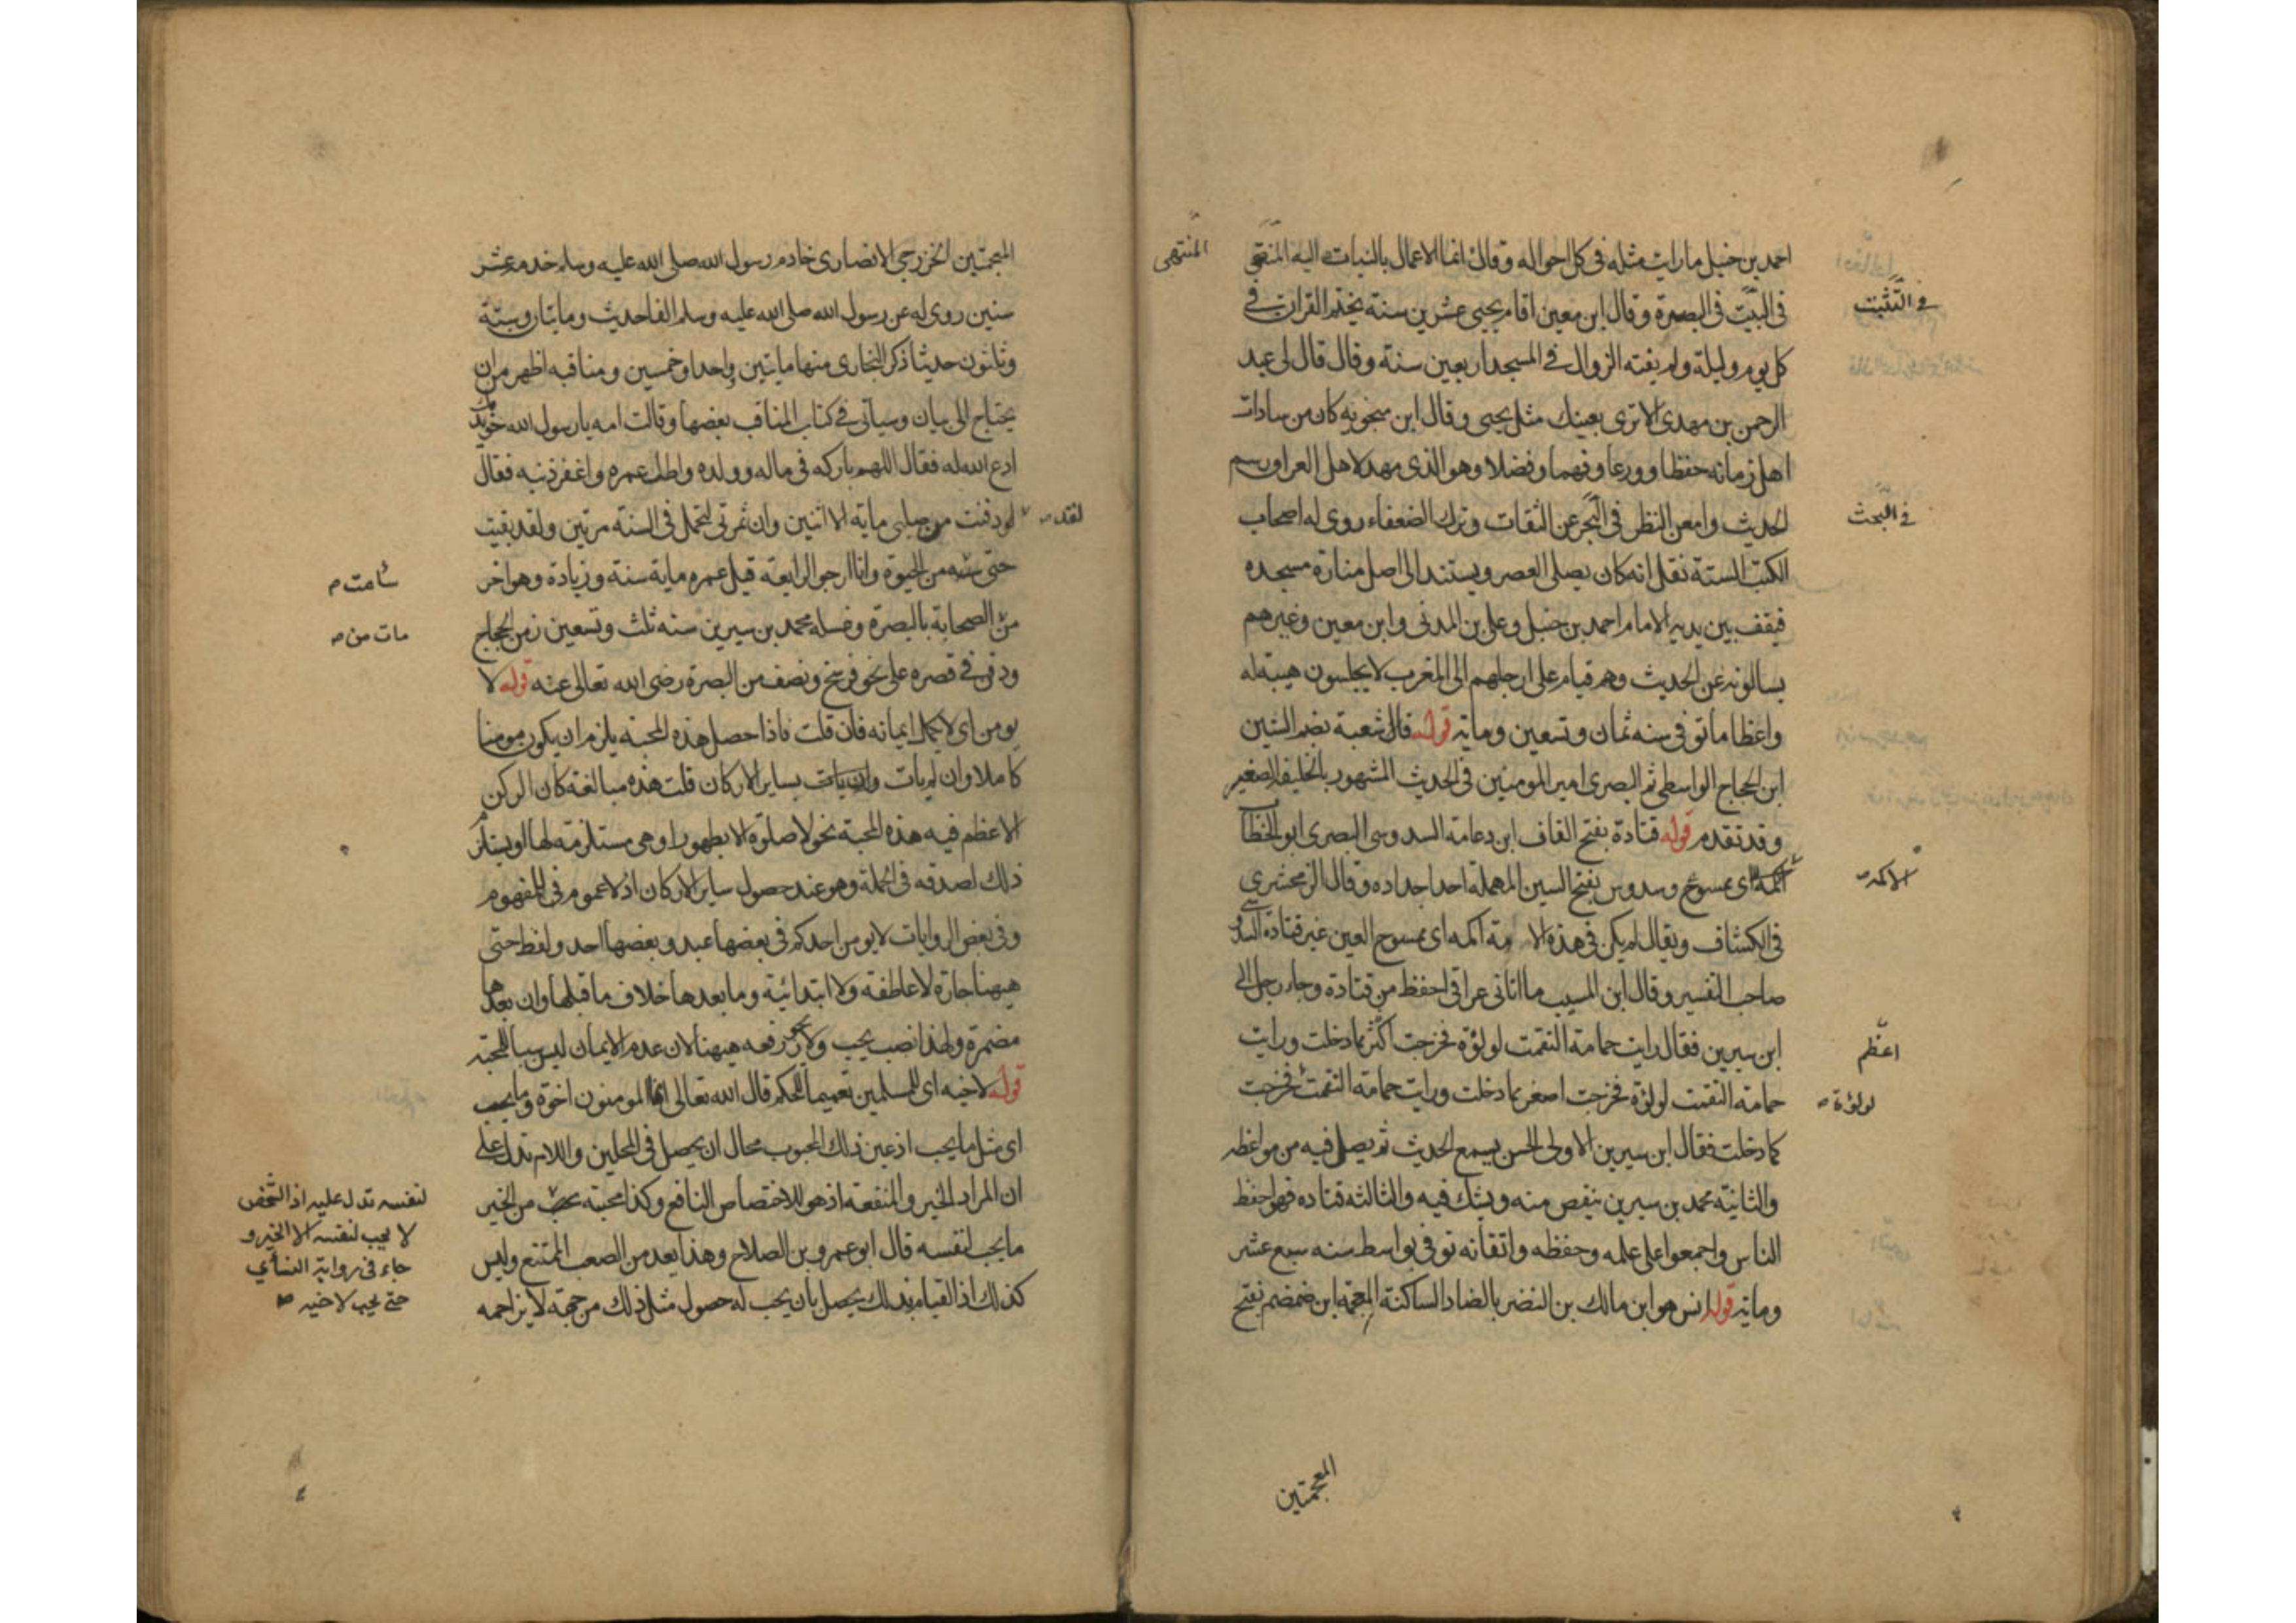 احمد بن حنبل ما رايت مثله فى كل احواله وقال انما الاعمال بالنيات اليه المنتهى
المنتهى
فى البيت فى البصرة وقال ابن معين اقام يحيى عشرين سنة يختم القران فى
فى التثبت
كل يوم وليلة ولم يفته الزوال فى المسجد اربعين سنة وقال قال لى عبد
الرحمن بن مهدى لا ترى بعينك مثل يحيى وقال ابن منجويه كان من سادات
اهل زمانه حفظا وورعا وفهما وفضلا وهو الذى مهد لاهل العراق رسم
الحديث وامعن النظر فى البحر عن الثقات وترك الضعفاء روى له اصحاب
فى البحث
الكتب الستة نقل انه كان يصلى العصر ويستند الى اصل منارة مسجده
فيقف بين يديه الامام احمد بن حنبل وعلى بن المدنى وابن معين وغيرهم
يسالونه عن الحديث وهم قيام على ارجلهم الى المغرب لا يجلسون هيبة له
واعظاما توفى سنه ثمان وتسعين وماية قوله قال شعبة بضم الشين
ابن الحجاج الواسطى ثم البصرى امير المومنين فى الحديث المشهور
وقد تقدم قوله قتادة بفتح القاف ابن دعامة السدوسى البصرى ابو الخطاب
اكمه اى ممسوح وسدوس بفتح السين المهملة احد اجداده وقال الزمخشرى
الاكمه
فى الكشاف ويقال لم يكن فى هذه الامة اكمه اى ممسوح العين غير قتادة السدوسى
صاحب التفسير وقال ابن المسيب ما اتانى عراقى احفظ من قتادة وجاء رجل الى
ابن سيرين فقال رايت حمامة التقمت لولؤة فخرجت اكثر مما دخلت ورايت
اعظم
حمامة التقمت لولؤة فخرجت اصغر مما دخلت ورايت حمامة التقمت فخرجت
لولؤة
كما دخلت فقال ابن سيرين الاولى الحسن يسمع الحديث ثم يصل فيه من مواعظه
والثانية محمد بن سيرين ينقص منه ويشك فيه والثالثه قتاده فهو احفظ
الناس واجمعوا على علمه وحفظه واتقانه توفى بواسط سنه سبع عشر
وماية قوله انس هو ابن مالك بن النضر بالضاد الساكنة المعجمة ابن ضمضم بفتح
المعجمتين
المعجمتين الخزرجى الانصارى خادم رسول الله صلى الله عليه وسلم خدمه عشر
سنين روى له عن رسول الله صلى الله عليه وسلم الفا حديث ومايتان وستة
وثلثون حديثا ذكر البخارى منها مايتين واحدا وخمسين ومناقبه اظهر من ان
يحتاج الى بيان وسياتى فى كتاب المناقب بعضها وقالت امه يا رسول الله خويدمك
ادع الله له فقال اللهم بارك فى ماله وولده واطل عمره واغفر ذنبه فقال
لو دفنت من صلبى ماية الا اثنين وان ثمرتى لتحمل فى السنة مرتين ولقد بقيت
لقد
حتى سئمه من الحيوة وانا ارجو الرابعة قيل عمره ماية سنة وزيادة وهو اخر
سأمت
من الصحابة بالبصرة وغسله محمد بن سيرين سنه ثلث وتسعين زمن الحجاج
مات من
ودفن فى قصره على نحو فرسخ ونصف من البصرة رضى الله تعالى عنه قوله لا
يومن اى لا يكمل ايمانه فان قلت فاذا حصل هذه المحبة يلزم ان يكون مومنا
كاملا وان لم يات وان يات بساير الاركان قلت هذه مبالغة كان الركن
الاعظم فيه هذه المحبة نحو لا صلوة الا بطهور او هى مستلزمة لها او يستلزم
ذلك لصدقه فى الجملة وهو عند حصول ساير الاركان اذ لا عموم فى المفهوم
وفى بعض الروايات لا يومن احدكم فى بعضها عبد وبعضها احد ولفظ حتى
هيهنا جارة لا عاطفة ولا ابتدائية وما بعدها خلاف ما قبلها وان بعدها
مضمرة ولهذا نصب يحب ولا يجوز رفعه هيهنا لان عدم الايمان ليس سببا للمحبة
قوله لاخيه اى للمسلمين تعميما للحكم قال الله تعالى انما المومنون اخوة وما يحب
اى مثل ما يحب اذ عين ذلك المحبوب محال ان يحصل فى المحلين واللام تدل على
ان المراد الخير والمنفعة اذ هو للاختصاص النافع وكذا محبته من الخير
لنفسه تدل عليه اذ الشخص
لا يحب لنفسه الا الخير و
جاء فى رواية النسأى
حتى يحب لاخيه
ما يحب لنفسه قال ابو عمرو بن الصلاح وهذا يعد من الصعب الممتنع وليس
كذلك اذ القيام بذلك يحصل بان يحب له حصول مثل ذلك من جهة لا يزاحمه